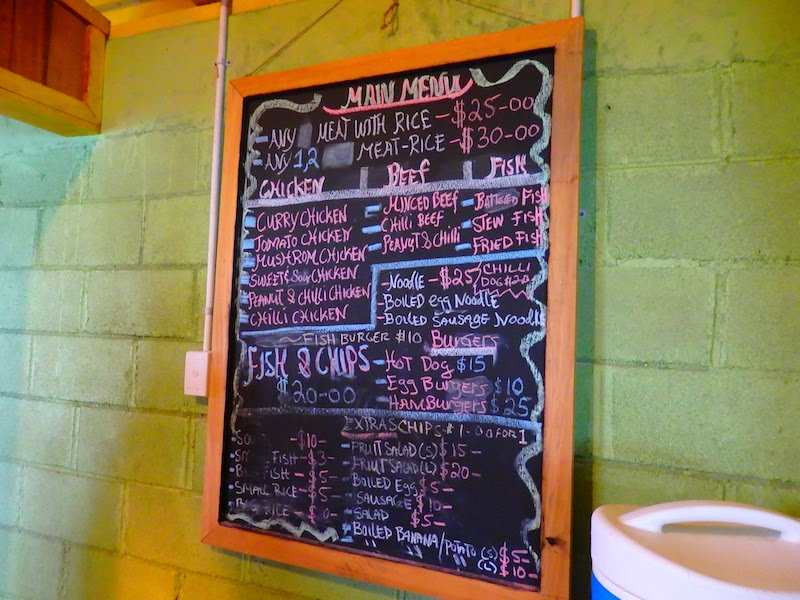 MAIN MENU
- ANY MEAT WITH RICE - $25-00
- ANY 1,2 MEAT-RICE - $30-00
CHICKEN BEEF FISH
- CURRY CHICKEN
- TOMATO CHICKEN
- MUSHROM CHICKEN
- SWEET & SOUR CHICKEN
- PEANUT & CHILLI CHICKEN
- CHILLI CHICKEN
- MINCED BEEF
- CHILLI BEEF
- PEANUT & CHILLI
- BATTERED FISH
- STEW FISH
- FRIED FISH
- NOODLE - $25
CHILLI
DOG
- BOILED EGG NOODLE
- BOILED SAUSAGE NOODLE
~ FISH BURGER $10
FISH & CHIPS
$20-00
BURGERS
- HOT DOG $15
- EGG BURGERS $10
- HAMBURGERS $25
EXTRAS CHIPS FOR 1
$10-
FISH - $3-
FISH - $5-
- SMALL RICE - $5-
RICE -
- FRUIT SALAD (S) $15-
- FRIUT SALAD (L) $20-
- BOILED EGG $5-
- SAUSAGE $10-
- SALAD $5-
- BOILED BANANA/POTATO (S) $5-
(L) $10-